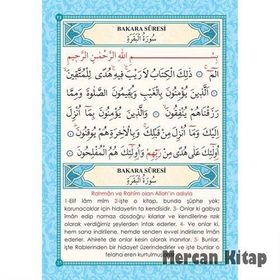 BAKARA SÛRESİ
سُورَةُ الْبَقَرَةِ
بِسْمِ اللهِ الرَّحْمٰنِ الرَّحِيمِ
الٓمٓ ۞ ذٰلِكَ الْكِتَابُ لَا رَيْبَ ۛ فِيهِ ۛ هُدًى لِلْمُتَّقِينَ
اَلَّذِينَ يُؤْمِنُونَ بِالْغَيْبِ وَيُقِيمُونَ الصَّلٰوةَ وَمِمَّا
رَزَقْنَاهُمْ يُنْفِقُونَ ۞ وَالَّذِينَ يُؤْمِنُونَ بِمَٓا اُنْزِلَ
اِلَيْكَ وَمَٓا اُنْزِلَ مِنْ قَبْلِكَ وَبِالْاٰخِرَةِ هُمْ يُوقِنُونَ
اُو۬لٰٓئِكَ عَلٰى هُدًى مِنْ رَبِّهِمْ وَاُو۬لٰٓئِكَ هُمُ الْمُفْلِحُونَ
BAKARA SÛRESİ
سُورَةُ الْبَقَرَةِ
Rahmân ve Rahîm olan Allah'ın adıyla
1-Elif lâm mîm 2-işte o kitap, bunda şüphe yok;
korunacaklar için hidayetin ta kendisidir. 3- Onlar ki gaybe
iman edip namaz dosdoğru kılarlar ve kendilerine rızık
olarak verdiğimiz şeylerden infak ederler. 4- Ve onlar ki,
hem sana indirilene, hemde senden evvel indirilene iman
ederler. Ahirete de onlar kesin olarak inanırlar. 5- Bunlar,
işte Rablerinden bir hidayet üzerindedirler ve işte bunlar o
felaha eren kurtulmuşlardır.
Mercan Kitap